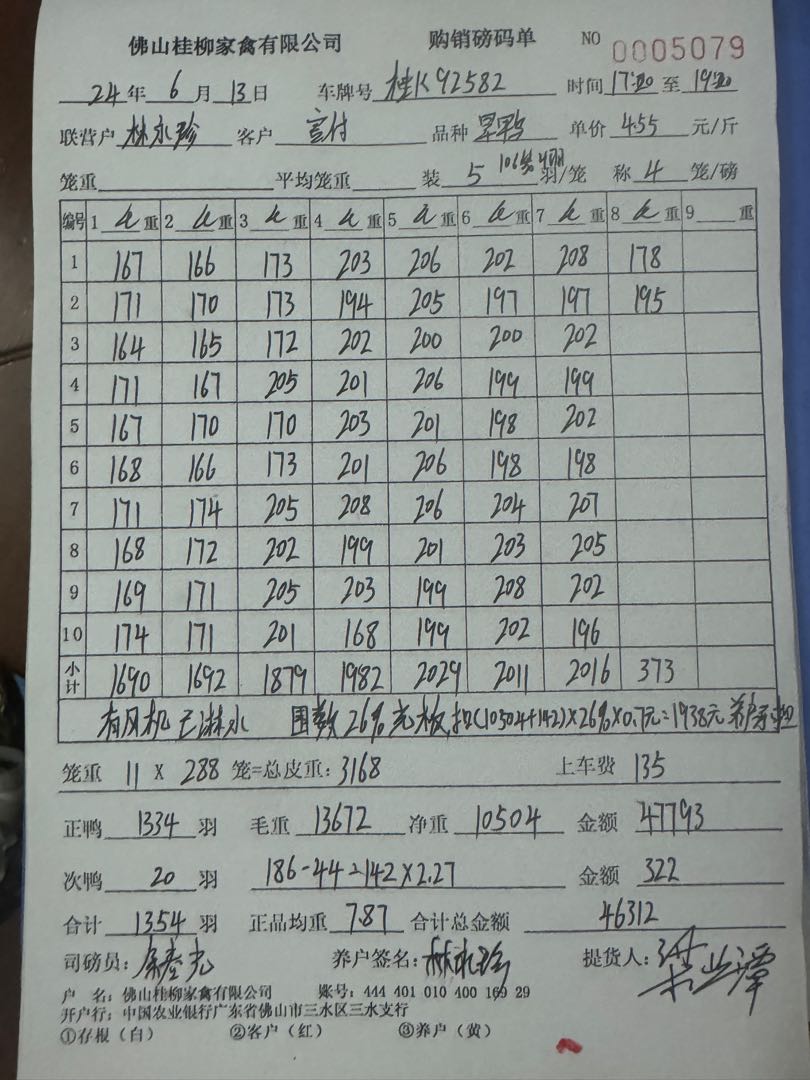 佛山桂柳家禽有限公司 购销磅码单 NO 0005079
24年 6月 13日 车牌号 桂K92582 时间 17:20 至 19:20
联营户 林永珍 客户 品种 旱鸭 单价 4.55 元/斤
笼重 平均笼重 装 5 羽/笼 称 4 笼/磅
编号 1 重 2 重 3 重 4 重 5 重 6 重 7 重 8 重 9 重
1 167 166 173 203 206 202 208 178
2 171 170 173 194 205 197 197 195
3 164 165 172 202 200 200 202
4 171 167 205 201 206 199 199
5 167 170 170 203 201 198 202
6 168 166 173 201 206 198 198
7 171 174 205 208 206 204 207
8 168 172 202 199 201 203 205
9 169 171 205 203 199 208 202
10 174 171 201 168 199 202 196
小计 1690 1692 1879 1982 2029 2011 2016 373
有风机 已淋水 围数26% 光板,扣(10504+142)×26%×0.7元=1938元
笼重 11 × 288 笼=总皮重:3168 上车费 135
正鸭 1334 羽 毛重 13672 净重 10504 金额 47793
次鸭 20 羽 186-44=142×2.27 金额 322
合计 1354 羽 正品均重 7.87 合计总金额 46312
司磅员: 养户签名:林永珍 提货人:
户 名:佛山桂柳家禽有限公司 账号:444 401 010 400 169 29
开户行:中国农业银行广东省佛山市三水区三水支行
①存根(白) ②客户(红) ③养户(黄)